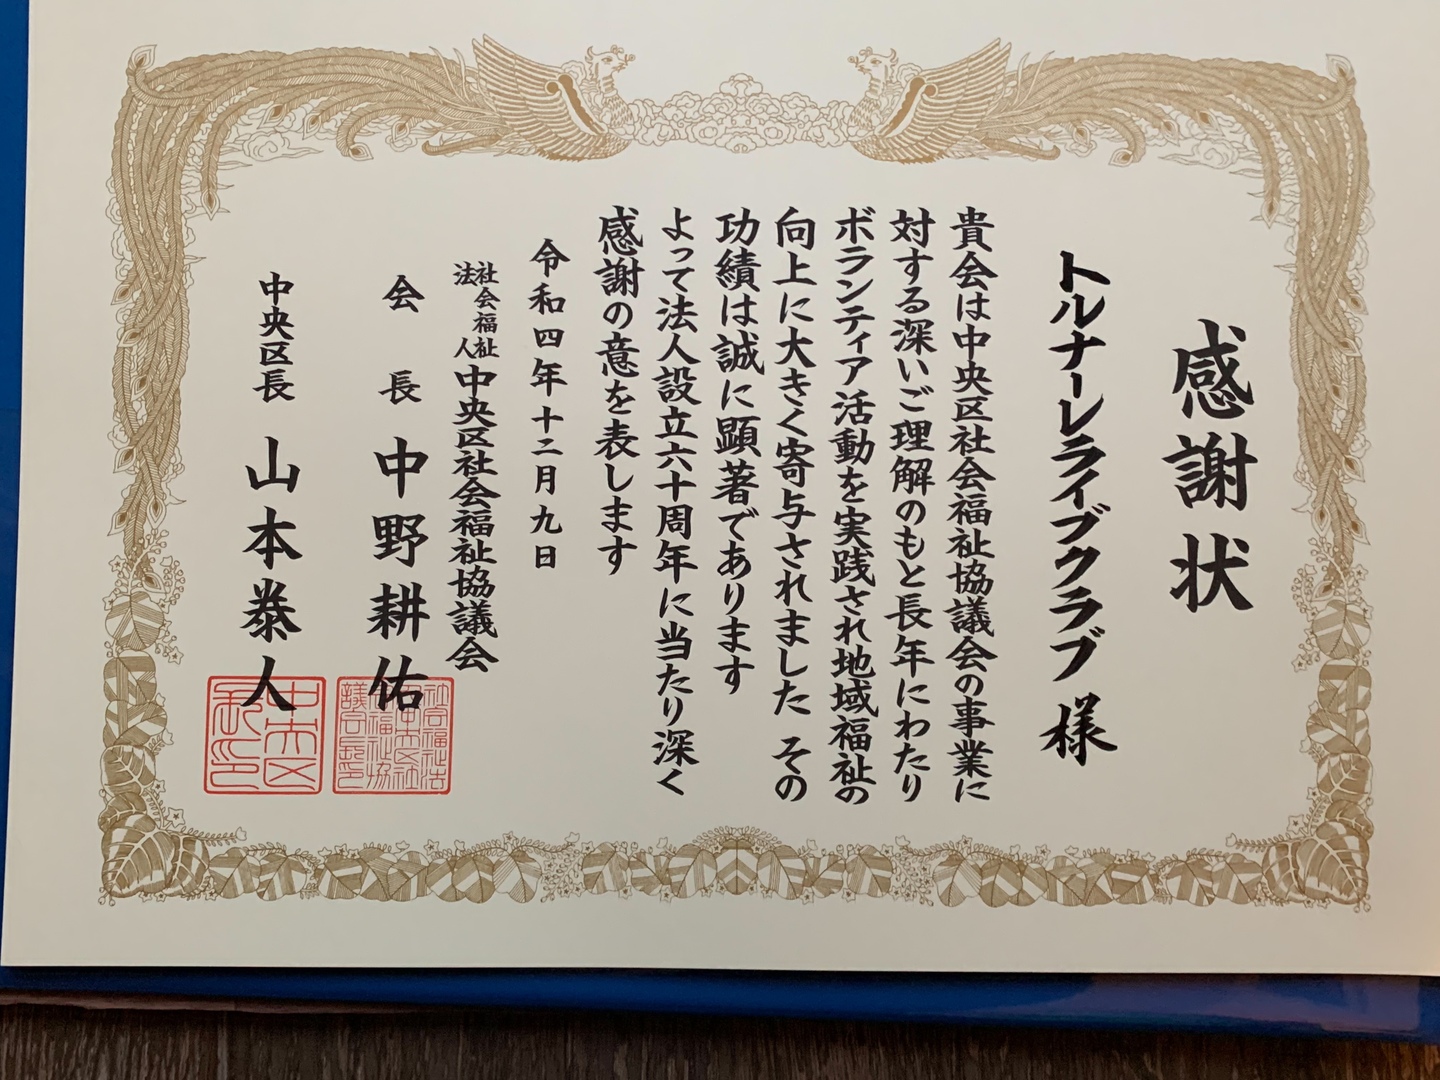 感謝状
トルナーレライブクラブ 様
貴会は中央区社会福祉協議会の事業に
対する深いご理解のもと長年にわたり
ボランティア活動を実践され地域福祉の
向上に大きく寄与されました その
功績は誠に顕著であります
よって法人設立六十周年に当たり深く
感謝の意を表します
令和四年十二月九日
社会福祉法人 中央区社会福祉協議会
会長 中野耕佑
中央区長 山本泰人
社会福祉法人中央区社会福祉協議会長印
中央区長印